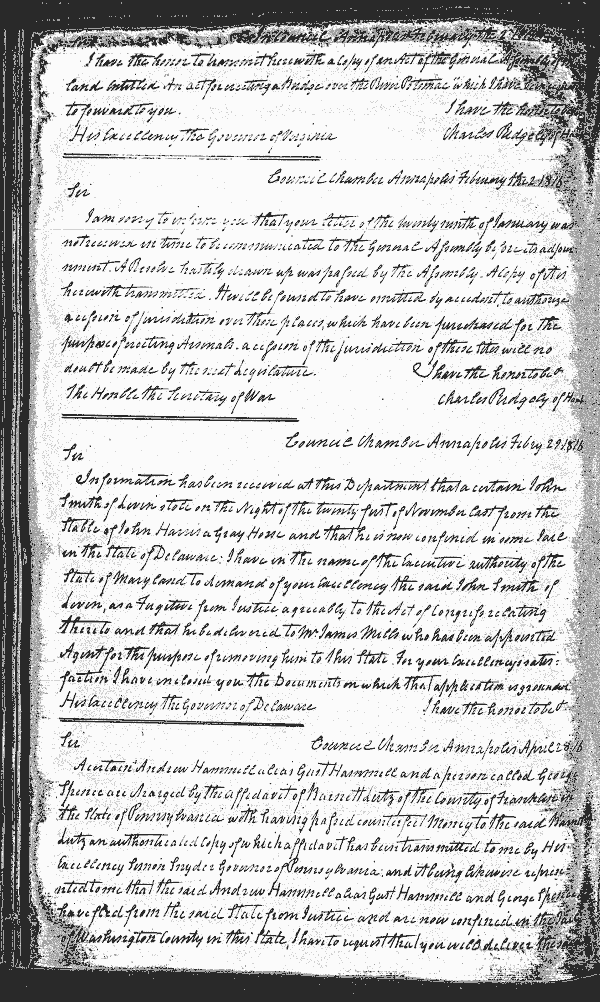 In Council Annapolis February the 2 1816
I have the honor to transmit herewith a Copy of an Act of the General Assembly of
land entitled "An act for erecting a Bridge over the River Potomac" which I have
to forward to you. I have the honor to
His Excellency the Governor of Virginia Charles Ridgely of
Council Chamber Annapolis February the 2 1816
Sir
I am sorry to inform you that your letter of the twenty ninth of January was
not received in time to be communicated to the General Assembly before its adjour
nment. A Resolve hastily drawn up was passed by the Assembly. A copy of it is
herewith transmitted. It will be found to have omitted by accident, to authorize
a cession of jurisdiction over those places, which have been purchased for the
purpose of erecting Arsenals. a cession of the jurisdiction of these sites will no
doubt be made by the next Legislature. I have the honor to be &
The Honble the Secretary of War Charles Ridgely of Ham
Council Chamber Annapolis Febry 29 1816
Sir
Information has been received at this Department that a certain John
Smith of Leven stole on the Night of the twenty first of November last from the
Stable of John Harris a Gray Horse and that he is now confined in some Jail
in the State of Delaware: I have in the name of the Executive authority of the
State of Maryland to demand of your Excellency the said John Smith of
Leven, as a Fugitive from Justice agreeably to the Act of Congress relating
thereto and that he be delivered to Mr. James Mills who has been appointed
Agent for the purpose of removing him to this State. For your Excellency's satis-
faction I have enclosed you the Documents on which that application is grounded
His Excellency the Governor of Delaware I have the honor to be &
Sir Council Chamber Annapolis April 28 1816
A certain Andrew Hammell alias Gust Hammell and a person called George
Spence are charged by the affidavit of Barnett Lutz of the County of Franklin in
the State of Pennsylvania with having passed counterfeit Money to the said Barnett
Lutz an authenticated Copy of which affidavit has been transmitted to me by His
Excellency Simon Snyder Governor of Pennsylvania; and it being likewise represe
nted to me that the said Andrew Hammell alias Gust Hammell and George Spence
have fled from the said State from Justice and are now confined in the Jail
of Washington County in this State, I have to request that you will deliver the said